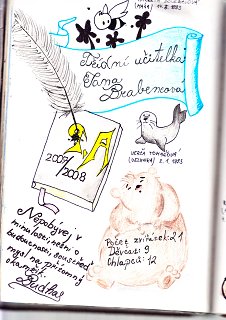 (MÁŇA) 11.8. 1993
Třídní učitelka
Jana
Brabencová
2007/
2008
(DEŽURKA) 2.1.1993
Nepobývej v
minulosti, nesni o
budoucnosti, soustřeď
mysl na přítomný
okamžik.
Buddha
Počet zvířátek: 21
Děvčat: 9
Chlapců: 12